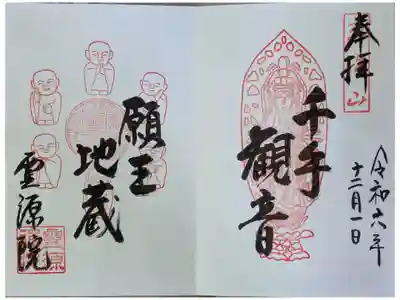 奉拝
千手
観音
令和六年
十二月一日
願王
地蔵
霊源院